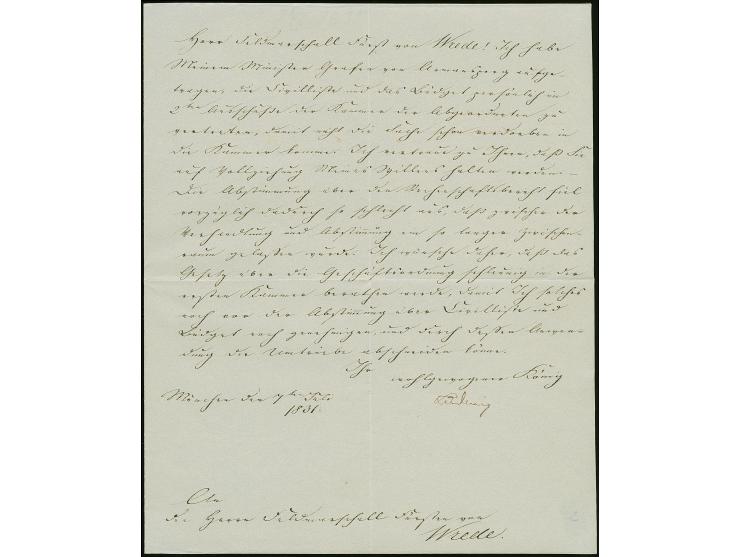 Herr Feldmarschall Fürst von Wrede! Ich habe
Meinem Minister Grafen von Armansperg aufge-
tragen, die Civilliste und das Büdget persönlich im
2ten Ausschuße der Kammer der Abgeordneten zu
vertreten, damit nicht die Sache schon verdorben in
die Kammer komme. Ich vertraue zu Ihnen, daß Sie
auf Vollziehung Meines Willens halten werden.–
Die Abstimmung über den Rechenschaftsbericht fiel
vorzüglich dadurch so schlecht aus, daß zwischen der
Verhandlung und Abstimmung ein so langer Zwischen-
raum gelassen wurde. Ich wünsche daher, daß das
Gesetz über die Geschäftsordnung schleunig in der
ersten Kammer berathen werde, damit Ich solches
noch vor der Abstimmung über Civilliste und
Büdget noch genehmigen, und durch dessen Anwen-
dung die Umtriebe abschneiden könne.
Ihr
wohlgewogener König
Ludwig
München den 7ten July
1831.
An
den Herrn Feldmarschall Fürsten von
Wrede.